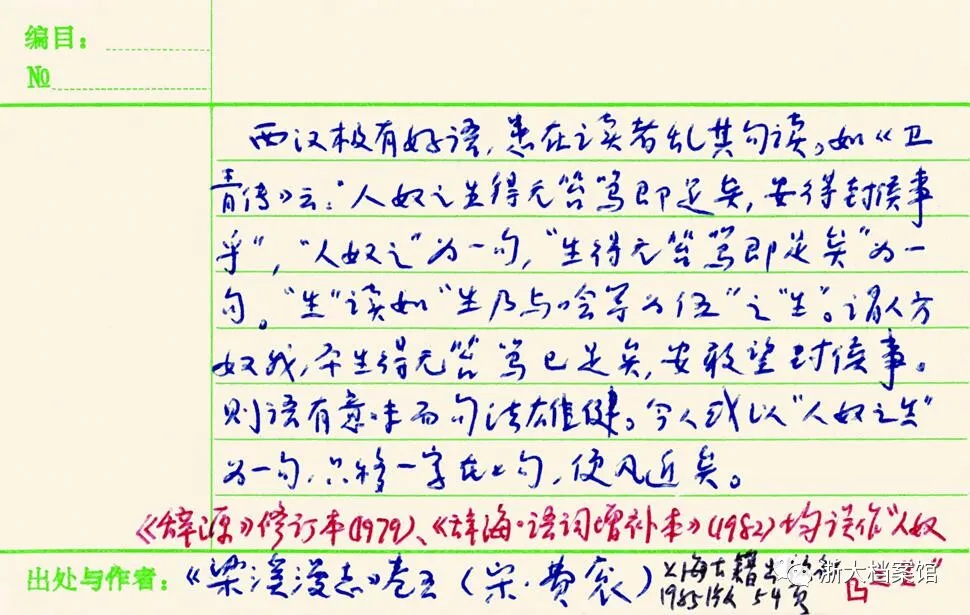 编目：
№
西汉极有好语，患在读者乱其句读。如《卫
青传》云："人奴之生得无笞骂即足矣，安得封侯事
乎"，"人奴之"为一句，"生得无笞骂即足矣"为一
句。"生"读如"生乃与哙等为伍"之"生"。谓人方
奴我，平生得无笞骂已足矣，安敢望封侯事。
则语有意味而句法雄健。今人或以"人奴之生"
为一句，只移一字在上句，便凡近矣。
《辞源》修订本(1979)、《辞海·语词增补本》(1982)均误作"人奴
出处与作者：《梁溪漫志》卷五（宋·费衮）上海古籍出
1985 54页
浙大档案馆